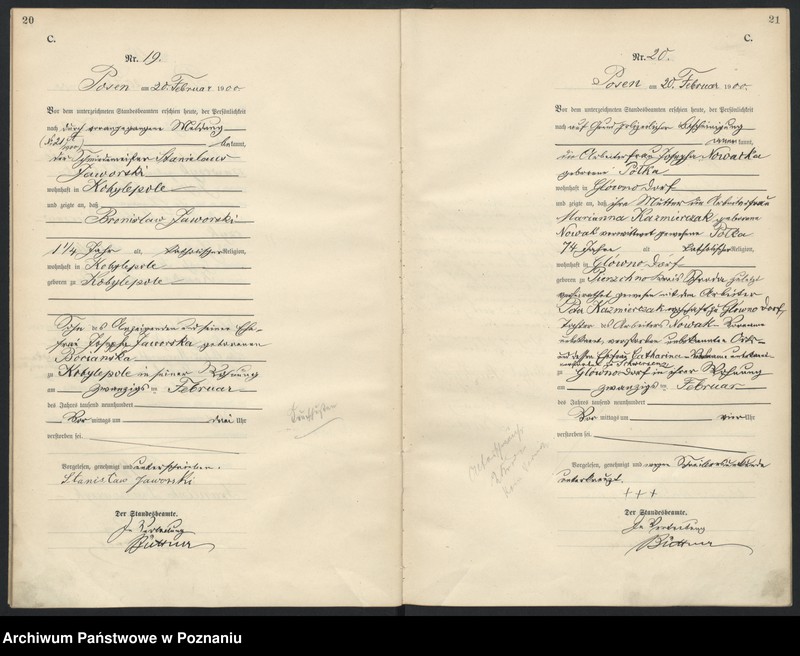 20
C.
Nr. 19.
Posen am 20. Februar 1900.
Vor dem unterzeichneten Standesbeamten erschien heute, der Persönlichkeit
nach durch vorangegangene Meldung
bekannt,
der Schmiedemeister Stanislaus
Jaworski
wohnhaft in Kobylepole
und zeigte an, daß
Bronislaw Jaworski
1 1/4 Jahr alt, katholischer Religion,
wohnhaft in Kobylepole
geboren zu Kobylepole
Sohn des Anzeigenden und seiner Ehe-
frau Josepha Jaworska geborenen
Bocianska
zu Kobylepole in seiner Wohnung
am zwanzigsten Februar
des Jahres tausend neunhundert
Vor mittags um drei Uhr
verstorben sei.
Vorgelesen, genehmigt und unterschrieben.
Stanislaw Jaworski
Der Standesbeamte.
In Vertretung
Büttner
21
C.
Nr. 20.
Posen am 20. Februar 1900.
Vor dem unterzeichneten Standesbeamten erschien heute, der Persönlichkeit
nach auf Grund polizeilicher Bescheinigung
kannt,
die Arbeiterfrau Josepha Nowacka
geborene Polka
wohnhaft in Glowno Dorf
und zeigte an, daß ihre Mutter die Arbeiterfrau
Marianna Kazmierczak geborene
Nowak verwittwet gewesene Polka
74 Jahre alt katholischer Religion,
wohnhaft in Glówno Dorf
geboren zu Kreis Schroda zuletzt
verheirathet gewesen mit dem Arbeiter
Kazmierczak zu Glowno Dorf,
Tochter des Arbeiters Nowak Vorname
unbekannt, verstorben unbekannten Orts
und dessen Ehefrau Catharina
zu Glówno dorf in ihrer Wohnung
am zwanzigsten Februar
des Jahres tausend neunhundert
Vor mittags um vier Uhr
verstorben sei.
Vorgelesen, genehmigt und wegen Schreibensunkunde
unterkreuzt.
+++
Der Standesbeamte.
In Vertretung
Büttner
Archiwum Państwowe w Poznaniu